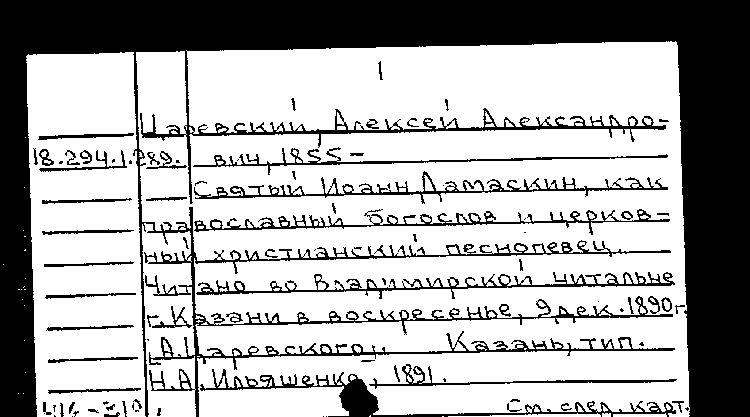 1
Царевский, Алексей Александро-
18.294.1.289. вич, 1855-
Святый Иоанн Дамаскин, как
православный богослов и церков-
ный христианский песнопевец.
Читано во Владимирской читальне
г. Казани в воскресенье, 9 дек. 1890 г.
А. Царевского. Казань, тип.
Н.А. Ильяшенко, 1891.
См. след. карт.